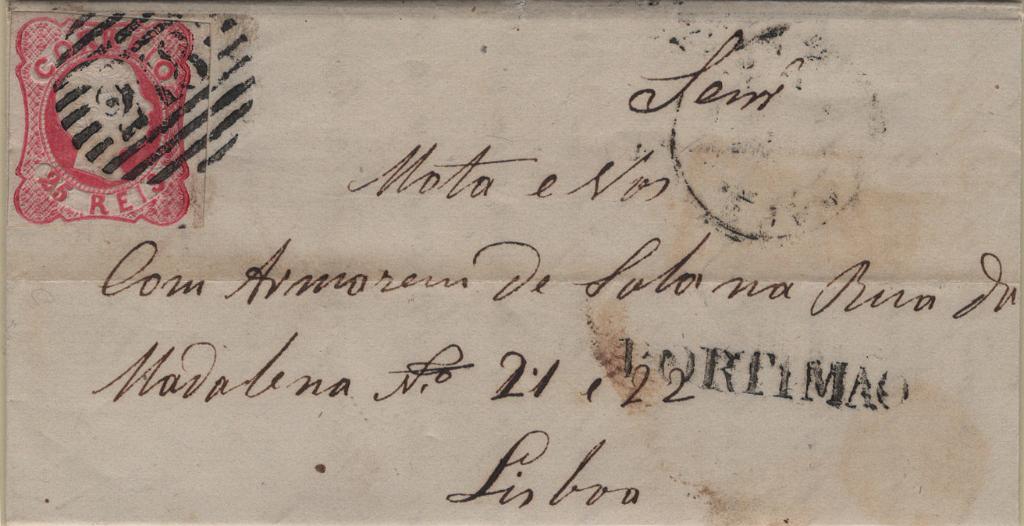 CORREIO
25 REIS
Senr
Mota e Vos
Com Armarem de Sola na Rua da
Madalena No 21 e 22
PORTIMAO
Lisboa